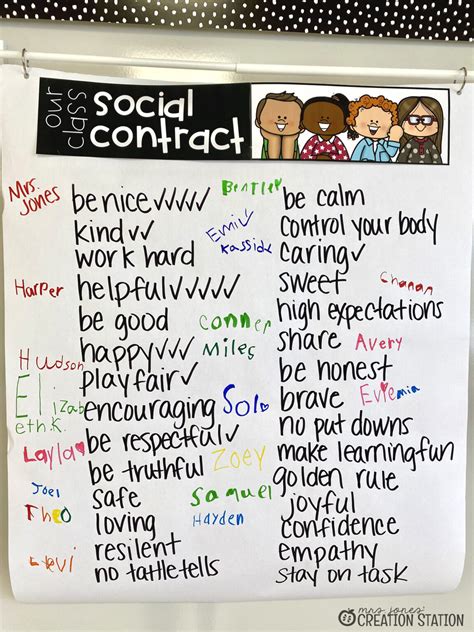 our class
social contract
Mrs. Jones
be nice ✓✓✓✓✓
kind ✓✓
work hard
Harper
helpful ✓✓✓✓✓
be good
happy ✓✓✓
Hudson
play fair ✓
Elizabeth K.
encouraging
be respectful ✓
Layla
be truthful
Joel
safe
Theo
loving
resilent
Levi
no tattletells
Bentley
Emily
Conner
Miles
Sol
Zoey
Samuel
Hayden
be calm
control your body
caring ✓
sweet
Chanan
high expectations
share
Avery
be honest
brave
no put downs
make learning fun
golden rule
joyful
confidence
empathy
stay on task
mrs. jones'
CREATION STATION